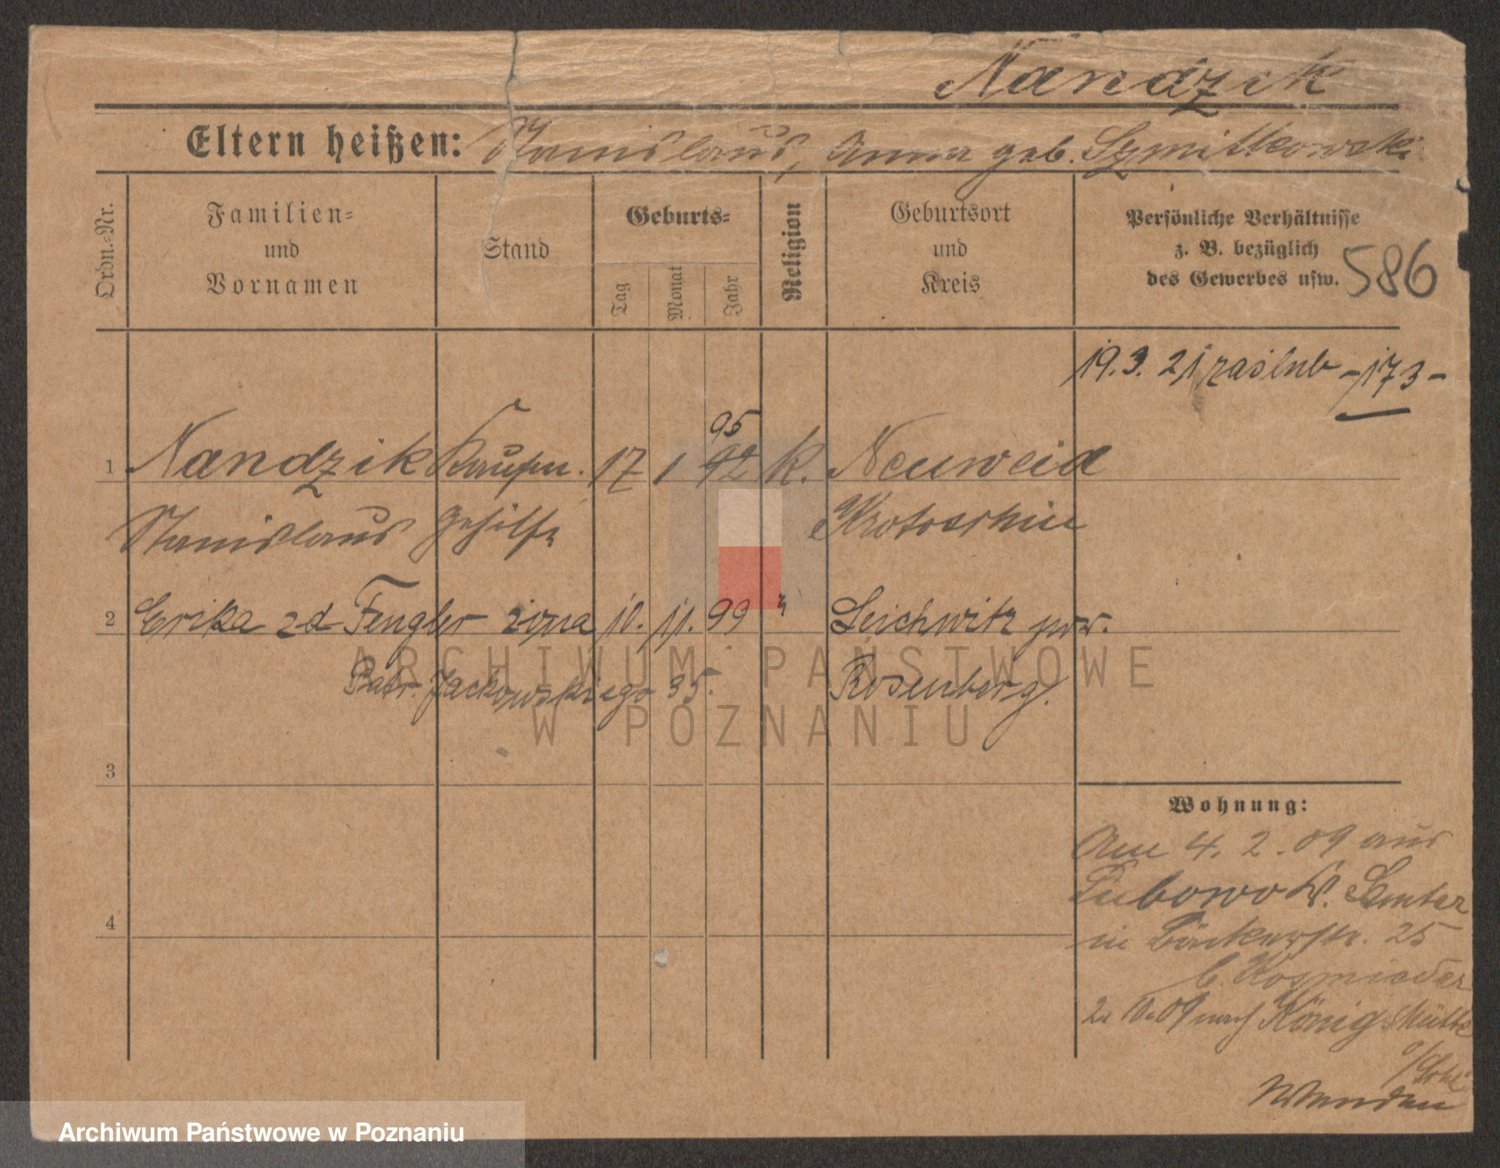 Nandzik
Eltern heißen: Stanislaus, Anna geb. Szmitkowski
Ordn.=Nr.
Familien=
und
Vornamen
Stand
Geburts=
Tag
Monat
Jahr
Religion
Geburtsort
und
Kreis
Persönliche Verhältnisse
z. B. bezüglich
des Gewerbes usw.
586
19. 3. 21 zaślub -173-
95
1 Nandzik Kaufm. 17 1 92 K. Neuweid
Stanislaus gehilfe Krotoschin
2 Erika zd Fengler żona 10. 11. 99 Leichwitz pow.
Patr. Jackowskiego 35. Rosenberg.
ARCHIWUM PAŃSTWOWE
W POZNANIU
3
Wohnung:
Am 4. 2. 09 aus
Lubowo K. Samter
4
in Bäckerstr. 25
b. Kosmieder
2. 10. 09 nach Königshütte
Archiwum Państwowe w Poznaniu